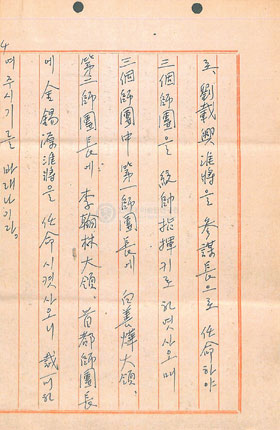 劉載興准將을 參謀長으로 任命하야
三個師團을 統帥指揮키로 하엿사오며
三個師團中 第一師團長에 白善燁大領,
第三師團長에 李翰林大領, 首都師團長
에 金錫源准將을 任命시켯사오니 裁可하
여 주시기를 바래나이다.
4